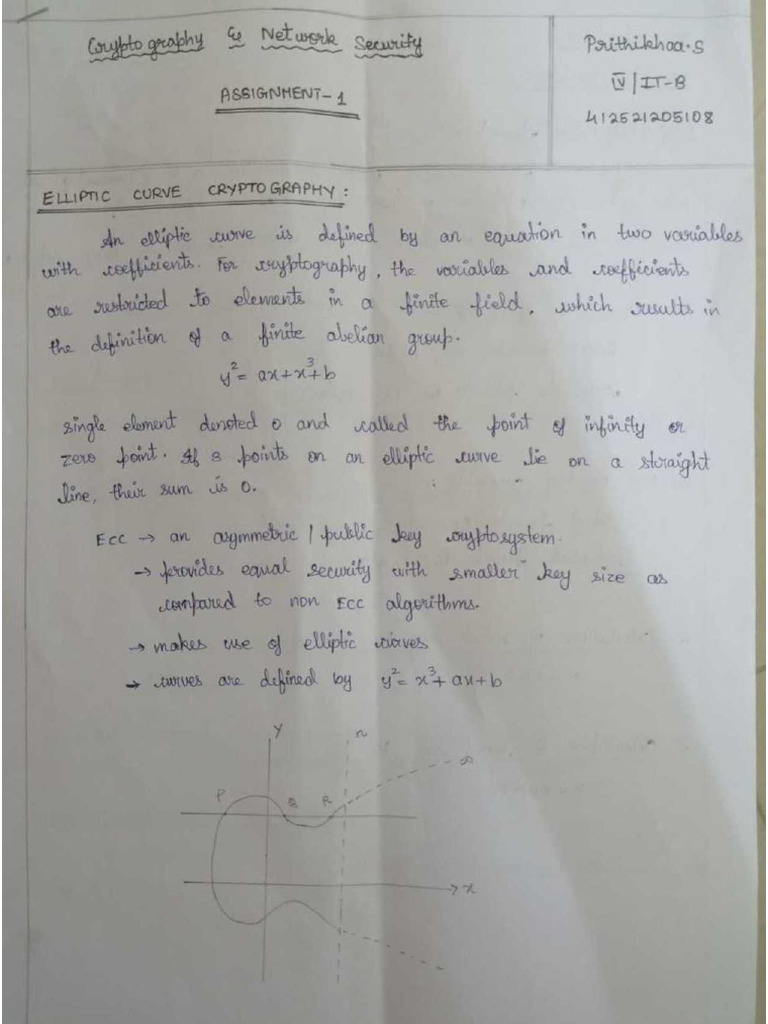 Cryptography & Network Security
Prithikhaa.S
IV/IT-B
ASSIGNMENT-1
412521205108
ELLIPTIC CURVE CRYPTOGRAPHY:
An elliptic curve is defined by an equation in two variables
with coefficients. For cryptography, the variables and coefficients
are restricted to elements in a finite field, which results in
the definition of a finite abelian group.
y² = ax+x³+b
single element denoted 0 and called the point of infinity or
zero point. If 3 points on an elliptic curve lie on a straight
line, their sum is 0.
ECC → an asymmetric / public key cryptosystem.
→ provides equal security with smaller key size as
compared to non ECC algorithms.
→ makes use of elliptic curves
→ curves are defined by y² = x³ + ax + b
Y
n
∞
P
Q
R
x